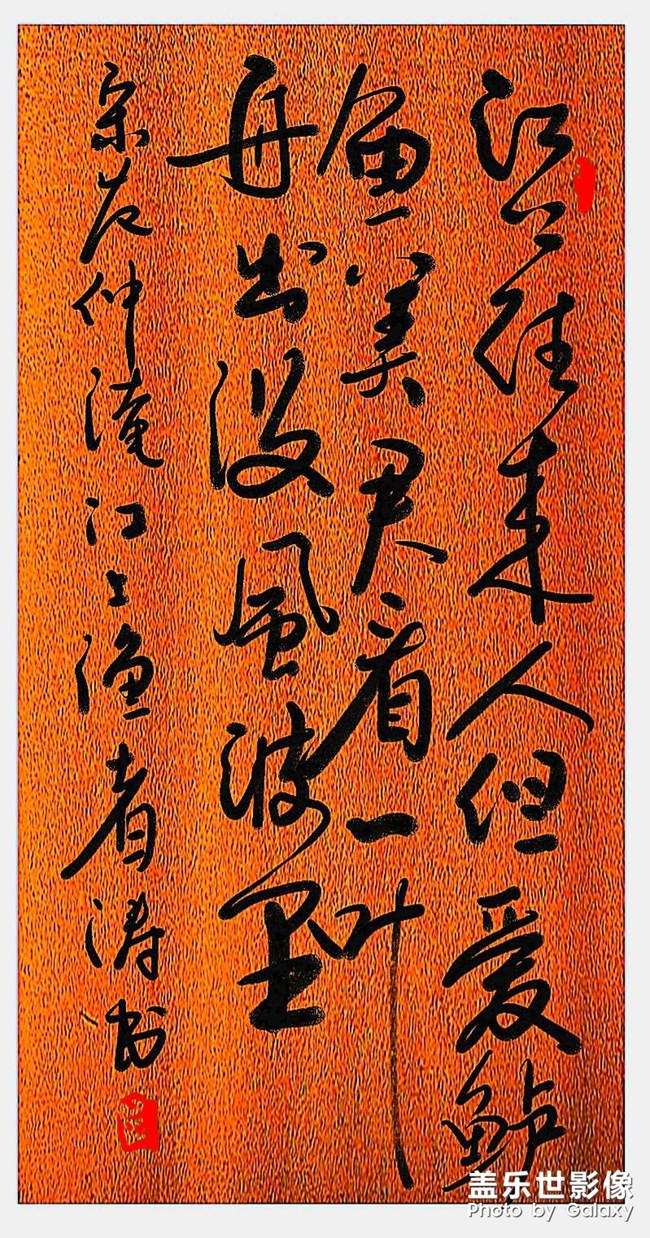 江上往来人但爱鲈
鱼美君看一叶
舟出没風波里
宋范仲淹江上渔者涛书
盖乐世影像
Photo by Galaxy